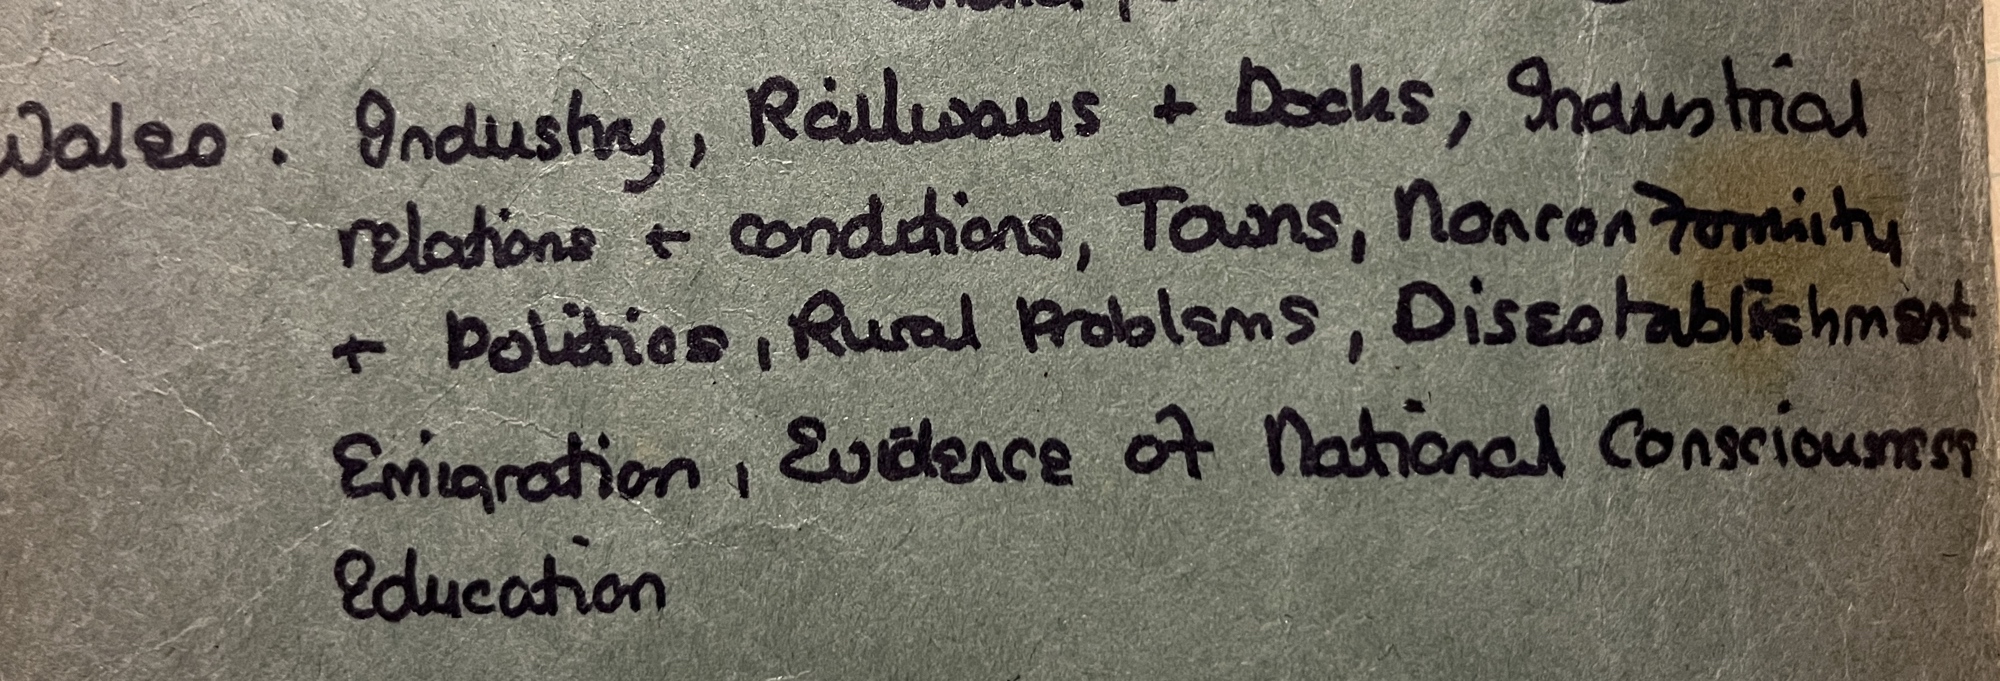 Wales: Industry, Railways + Docks, Industrial
relations + conditions, Towns, Nonconformity
+ Politics, Rural Problems, Disestablishment
Emigration, Evidence of National Consciousness
Education